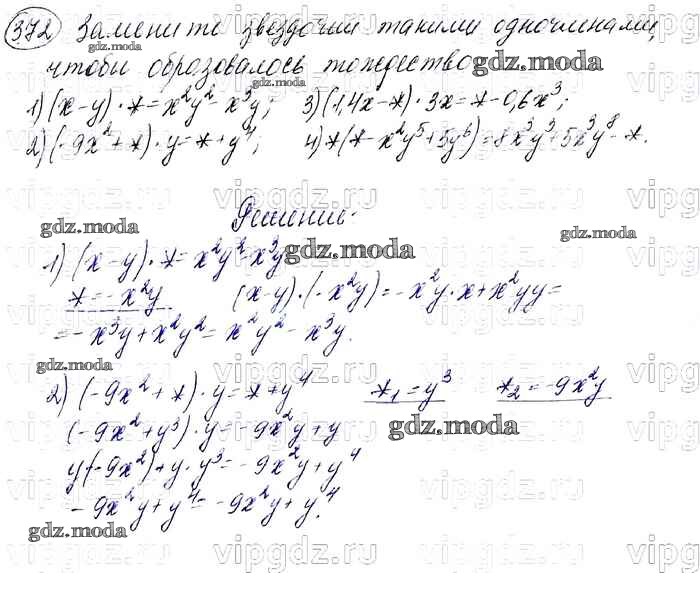 372 Замените звездочки такими одночленами,
чтобы образовалось тождество
1) (x-y)·*=x²y²-x³y; 3) (1,4x-*)·3x=*-0,6x³;
2) (-9x²+*)·y=*+y⁴; 4) *(*-x²y⁵+5y⁶)=8x³y³+5x³y⁸-*.
Решение.
1) (x-y)·*=x²y²-x³y
*=-x²y (x-y)·(-x²y)=-x²y·x+x²yy=
=-x³y+x²y²=x²y²-x³y.
2) (-9x²+*)·y=*+y⁴ *₁=y³ *₂=-9x²y
(-9x²+y³)·y=-9x²y+y
y(-9x²)+y·y³=-9x²y+y⁴
-9x²y+y⁴=-9x²y+y⁴.